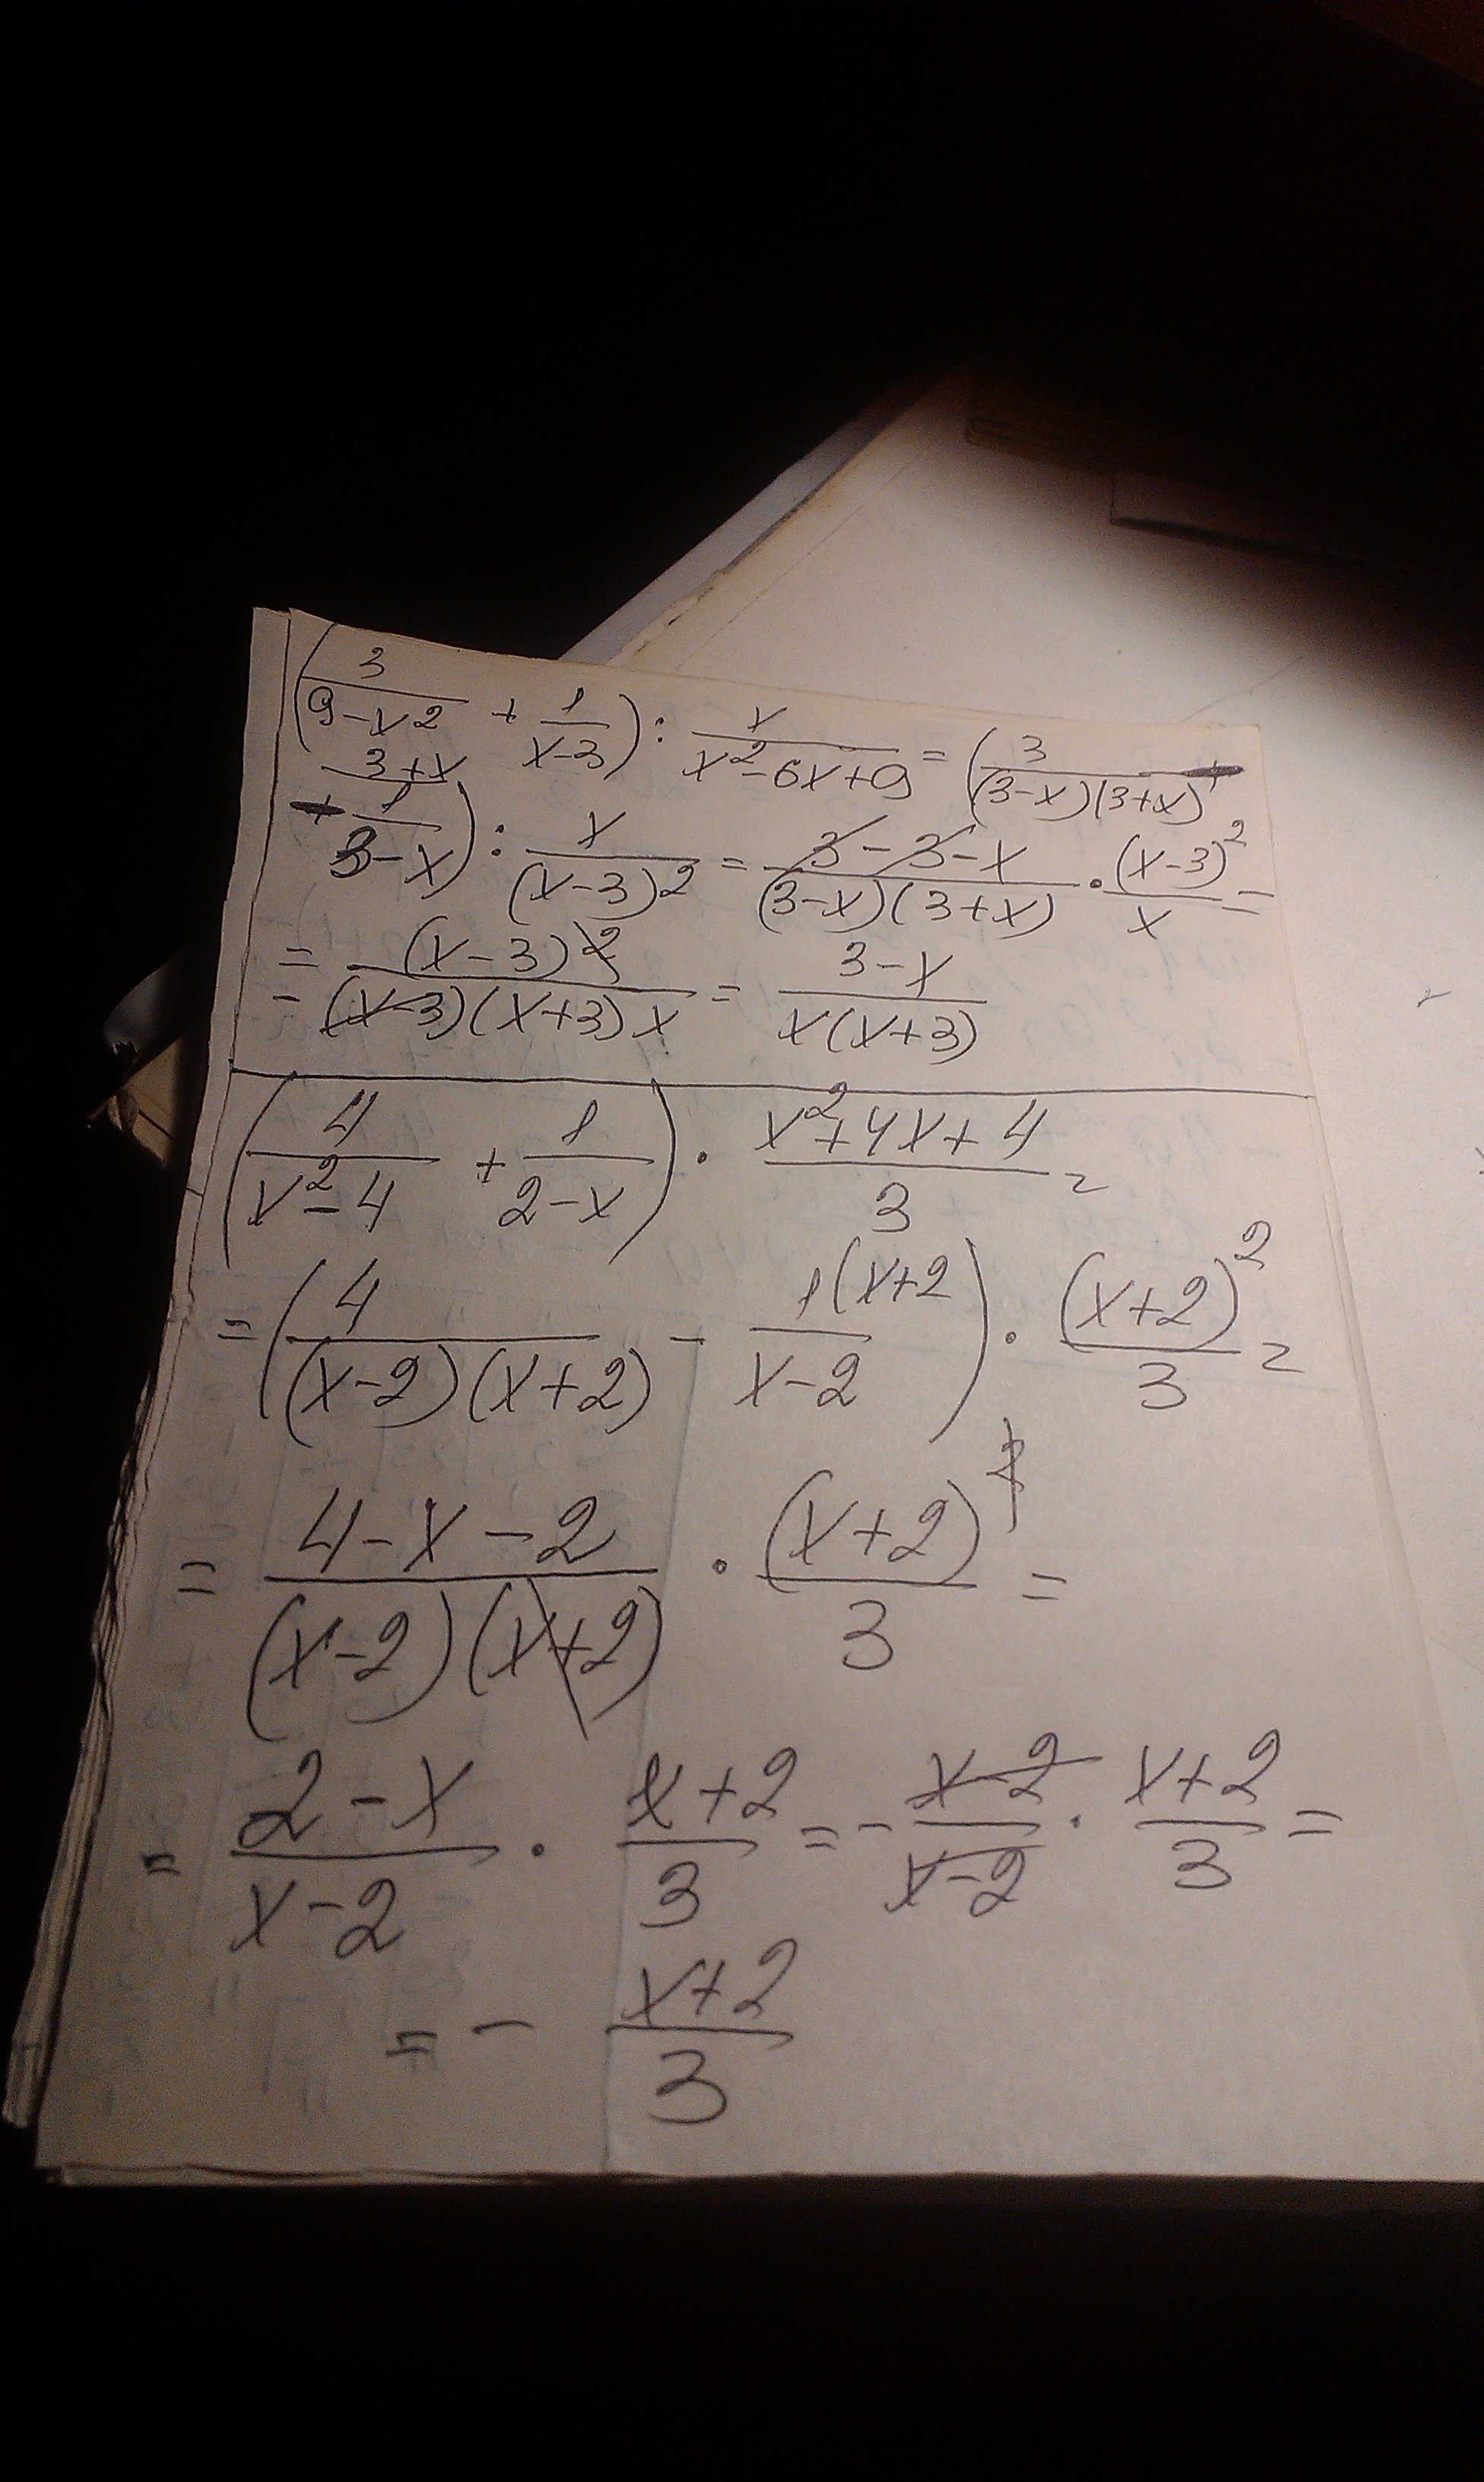 (3/(9-x²) + 1/(x-3)) : x/(x²-6x+9) = (3/((3-x)(3+x)) -
- (3+x) 1/(3-x)) : x/(x-3)² = (3-3-x)/((3-x)(3+x)) · (x-3)²/x =
= - (x-3)²/((x-3)(x+3)x) = (3-x)/(x(x+3))
(4/(x²-4) + 1/(2-x)) · (x²+4x+4)/3 =
= (4/((x-2)(x+2)) - 1(x+2/(x-2)) · (x+2)²/3 =
= (4-x-2)/((x-2)(x+2)) · (x+2)²/3 =
= (2-x)/(x-2) · (x+2)/3 = - (x-2)/(x-2) · (x+2)/3 =
= - (x+2)/3